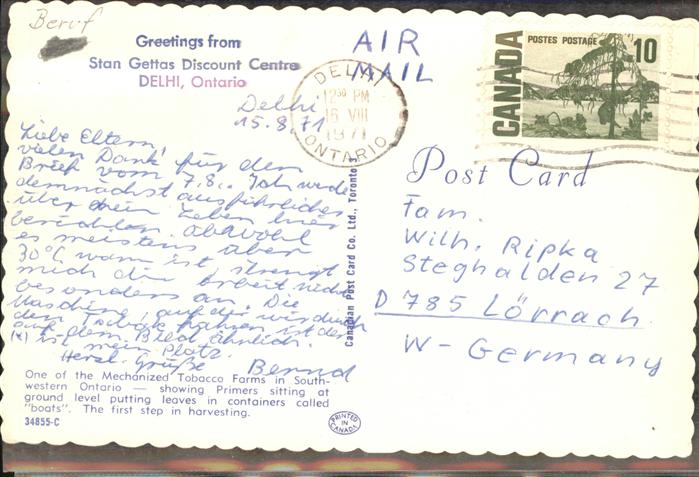 Beruf
Greetings from
Stan Gettas Discount Centre
DELHI, Ontario
AIR
MAIL
CANADA
POSTES POSTAGE
10
DELHI
12 30 PM
16 VIII
1971
ONTARIO
Delhi
15.8.71
Liebe Eltern!
vielen Dank für den
Brief vom 7.8.. Ich werde
demnächst ausführlicher
über mein Leben hier
berichten. Obwohl
es meistens über
30°C warm ist strengt
mich die Arbeit nicht
besonders an. Die
Maschine, auf der wir durch
den Tabak fahren ist der
auf dem Bild ähnlich.
(x) ist mein Platz.
Herzl. Grüße
Bernd
One of the Mechanized Tobacco Farms in South-
western Ontario — showing Primers sitting at
ground level putting leaves in containers called
"boats". The first step in harvesting.
34855-C
PRINTED
IN
CANADA
Canadian Post Card Co. Ltd., Toronto
Post Card
Fam.
Wilh. Ripka
Steghalden 27
D 785 Lörrach
W-Germany